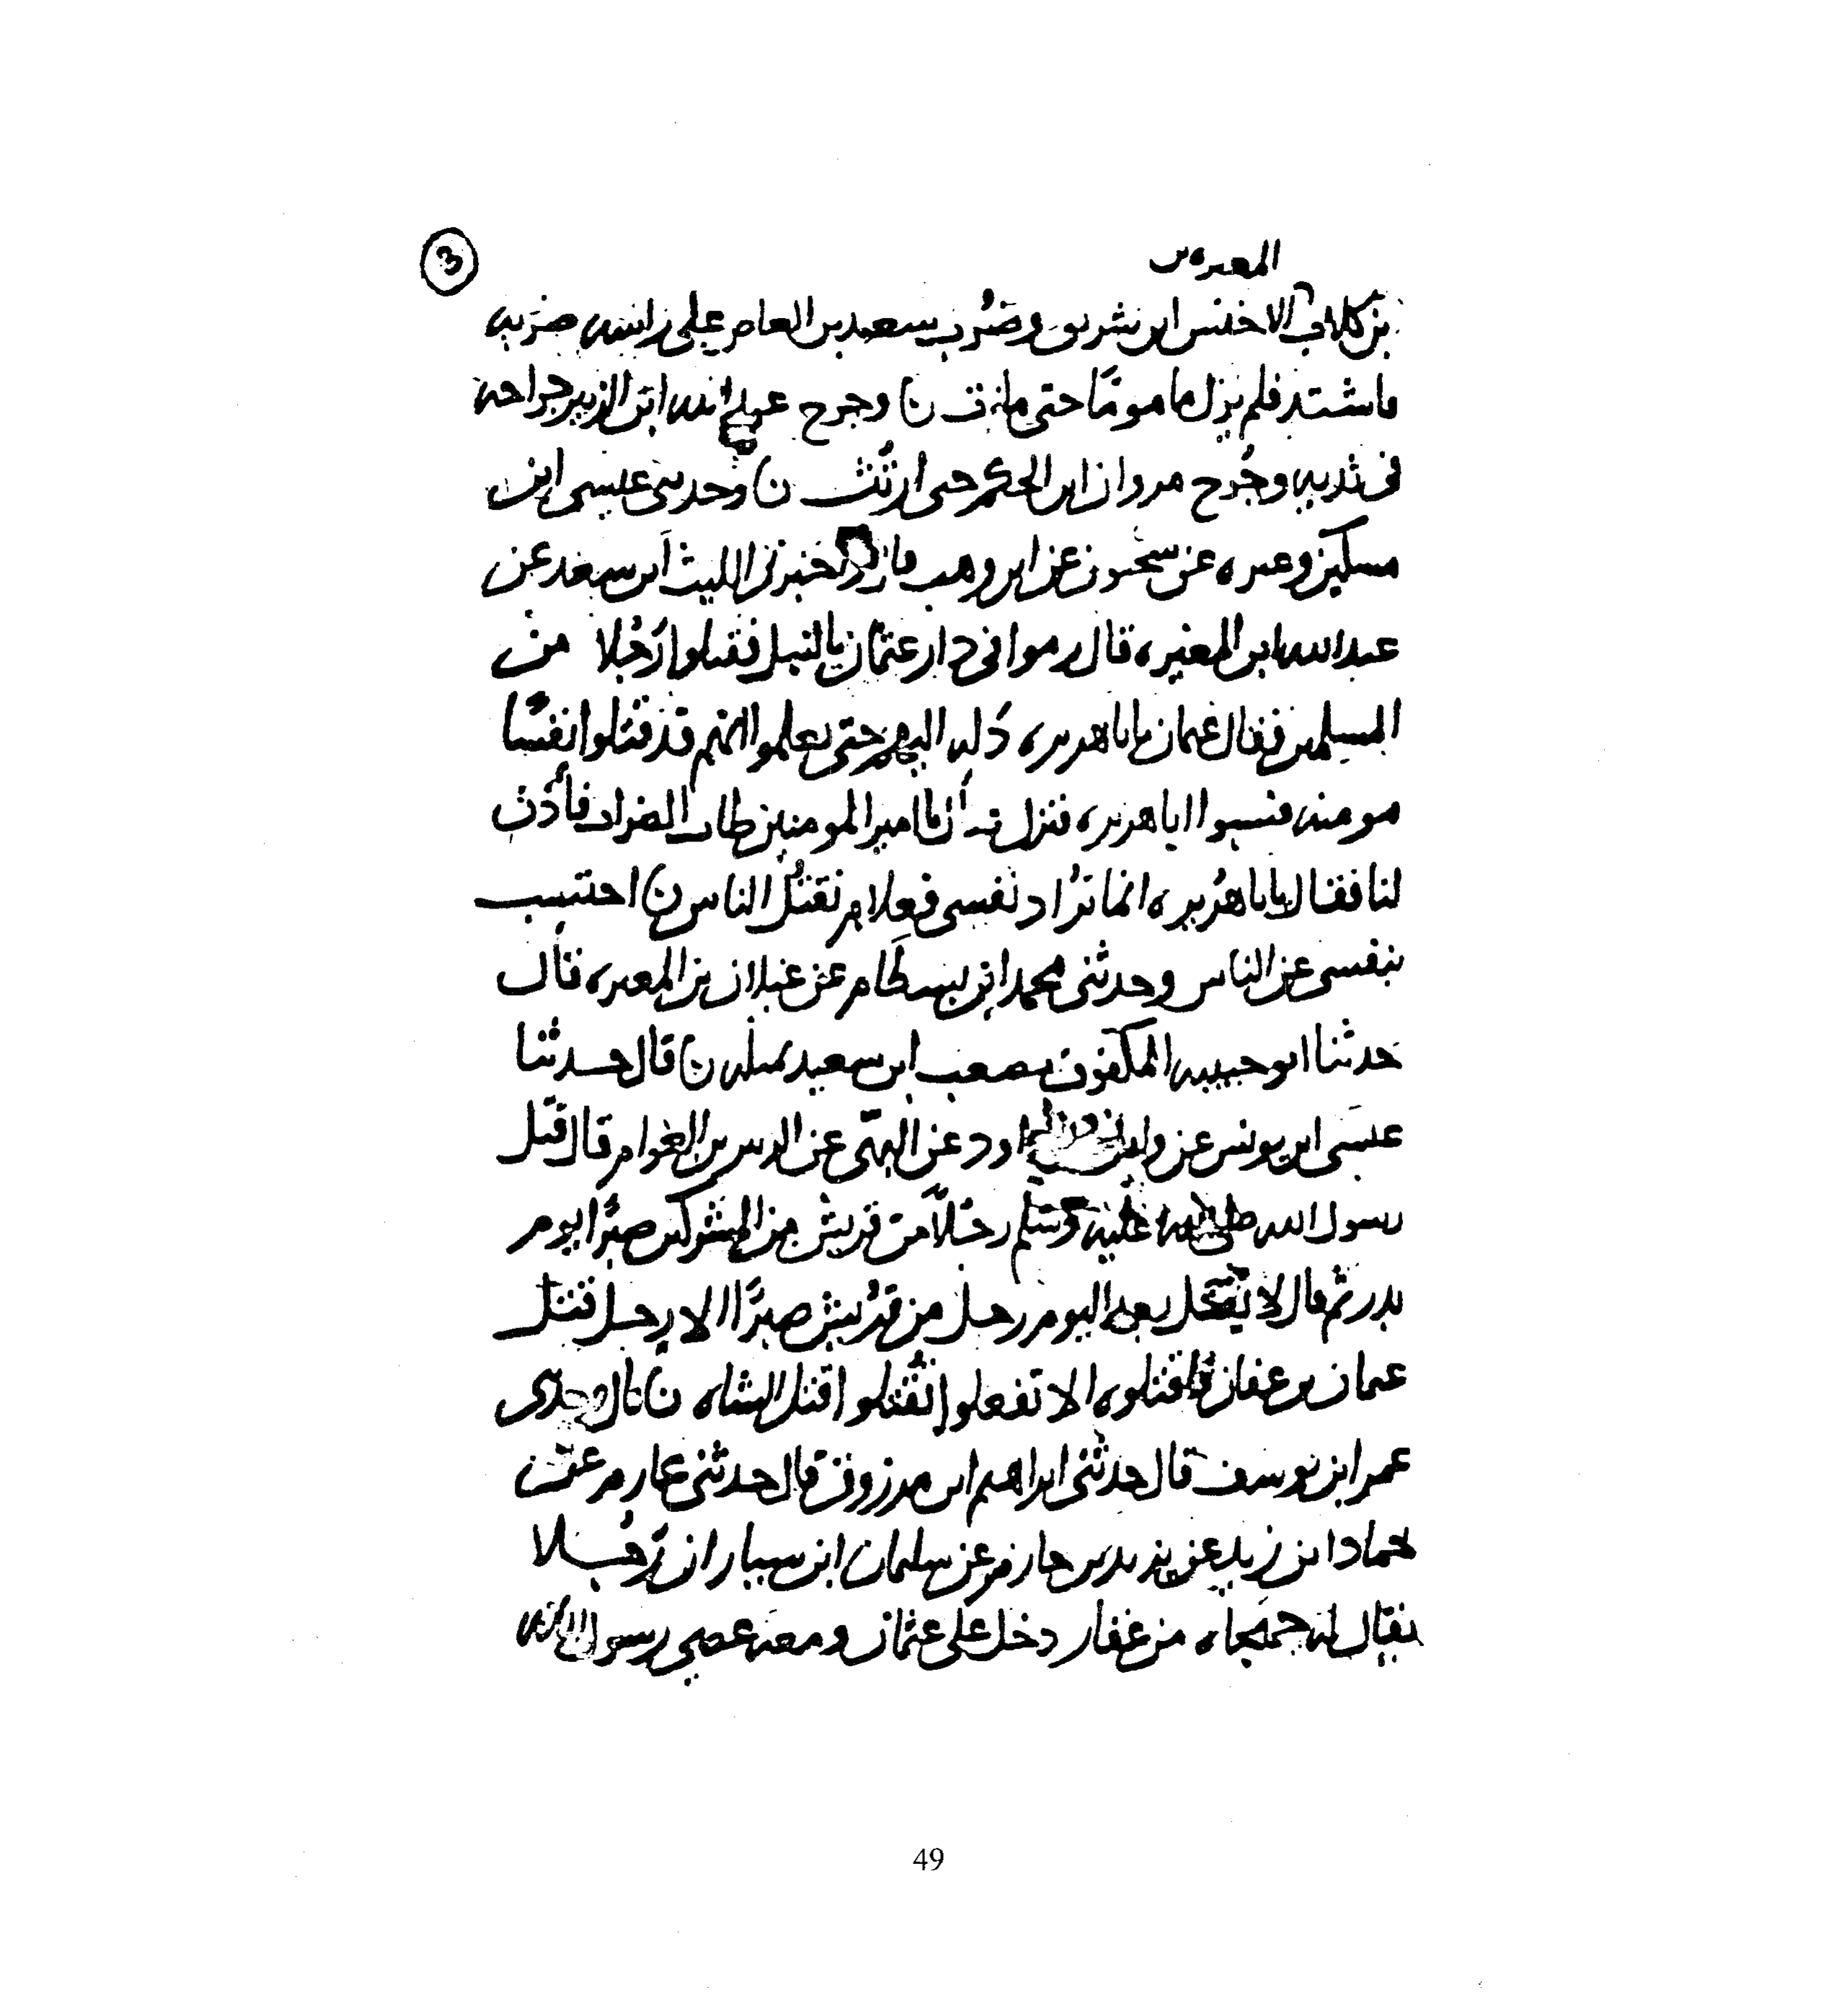 3
المغيره بن
بن كلاب الاخنس ابن شريق وضرب سعيد بن العاص على راسه ضربه
فاشتد فلم يزل مامومًا حتى مات ن وجرح عبد الله ابن الزبير جراحه
فى ثديه وجُرح مروان ابن الحكم حتى ارتُث ن وحدثنى عيسى ابن
مسكين وغيره عن سحنون عن ابن وهب قال اخبرنى الليث ابن سعد عن
عبد الله ابن المغيره قال رموا فى دار عثمان بالنبل فقتلوا رجُلا من
المسلمين فقال عثمان يا با هريره دله اليهم حتى يعلموا انهم قد قتلوا نفسًا
مومنه فنسبوا ابا هريره فنزل ثم أتا امير المومنين طاب الضراب فأذن
لنا فقال يا با هُريره انما تُراد نفسى فعلام نقتُل الناس ن احتسب
بنفسى عن الناس وحدثنى محمد ابن بسطام عن غيلان بن المغيره قال
حدثنا ابو حبيبه المكفوف مصعب ابن سعيد ن قال حدثنا
عيسَى ابن يونس عن وايل ابن داود عن البهى عن الزبير بن العوام قال قتل
رسول الله صلى الله عليه وسلم رجُلاً من قريش من المشركين صبرًا يوم
بدر ثم قال لا يقتل بعد اليوم رجل من قريش صبرًا الا رجل قتل
عثمان بن عفان فاقتلوه الا تفعلوا تُقتلوا قتل الشاه ن قال وحدثنى
عمر ابن يوسف قال حدثنى ابراهيم ابن مرزوق قال حدثنى عارم عن
حماد ابن زيد عن يزيد بن حازم عن سليمان ابن يسار ان رَجُلا
يقال له جهجاه من غفار دخل على عثمان ومعه عصى رسول الله
49